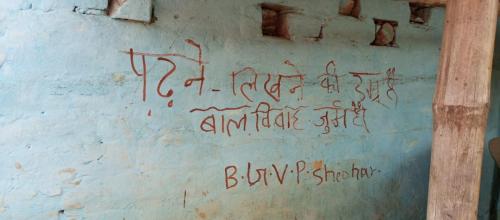 पढ़ने - लिखने की उम्र है
बाल विवाह जुर्म है।
B.G.V.P. Sheohar.